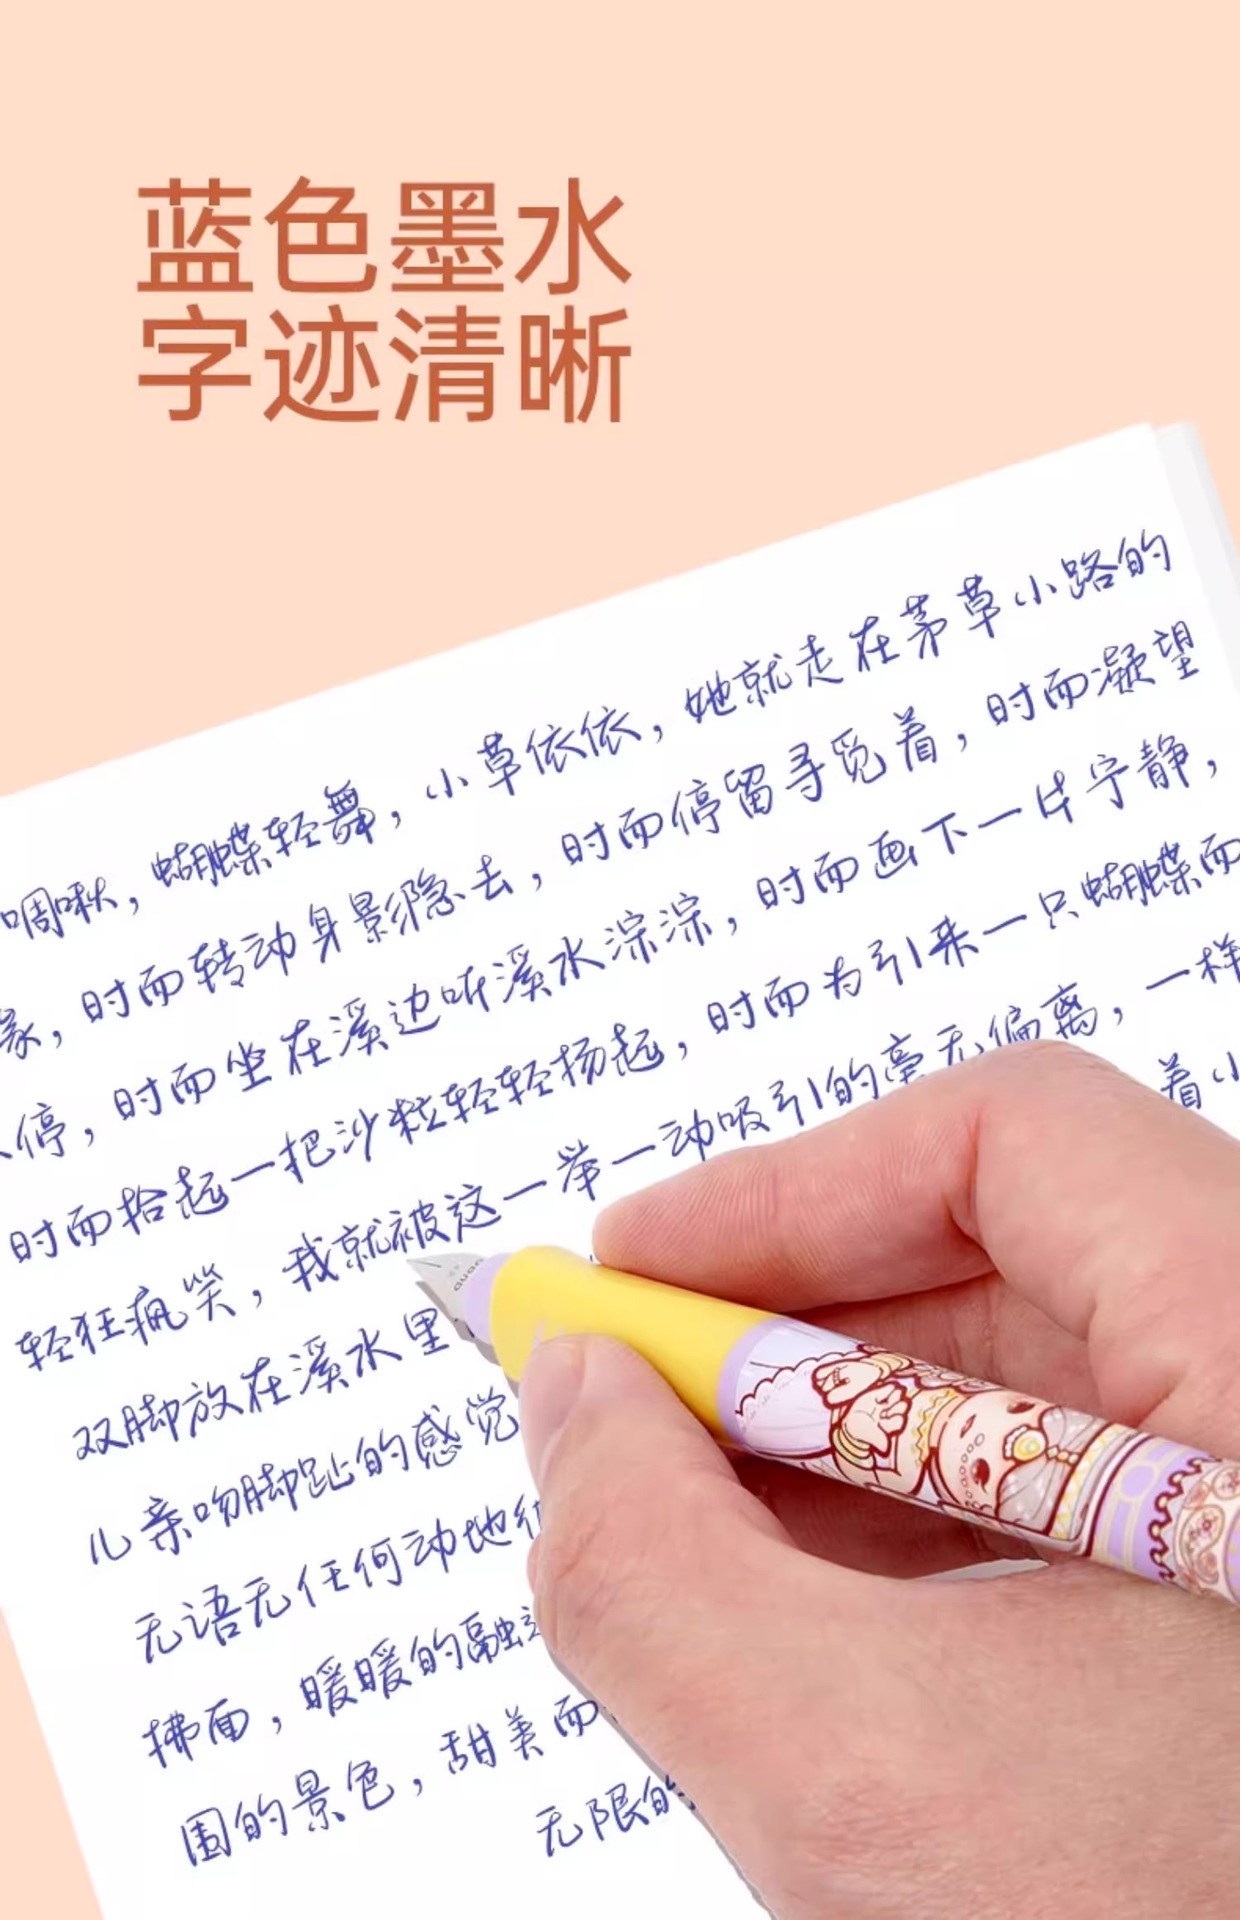 蓝色墨水
字迹清晰
啁啾，蝴蝶轻舞，小草依依，她就走在茅草小路的
缘，时而转动身影隐去，时而停留寻觅着，时而凝望
停，时而坐在溪边听溪水淙淙，时而画下一片宁静，
时而拾起一把沙粒轻轻扬起，时而为引来一只蝴蝶而
轻狂疯笑，我就被这一举一动吸引的毫无偏离，一样
双脚放在溪水里 着小
儿亲吻脚趾的感觉
无语无任何动地
拂面，暖暖的融
围的景色，甜美而
无限的